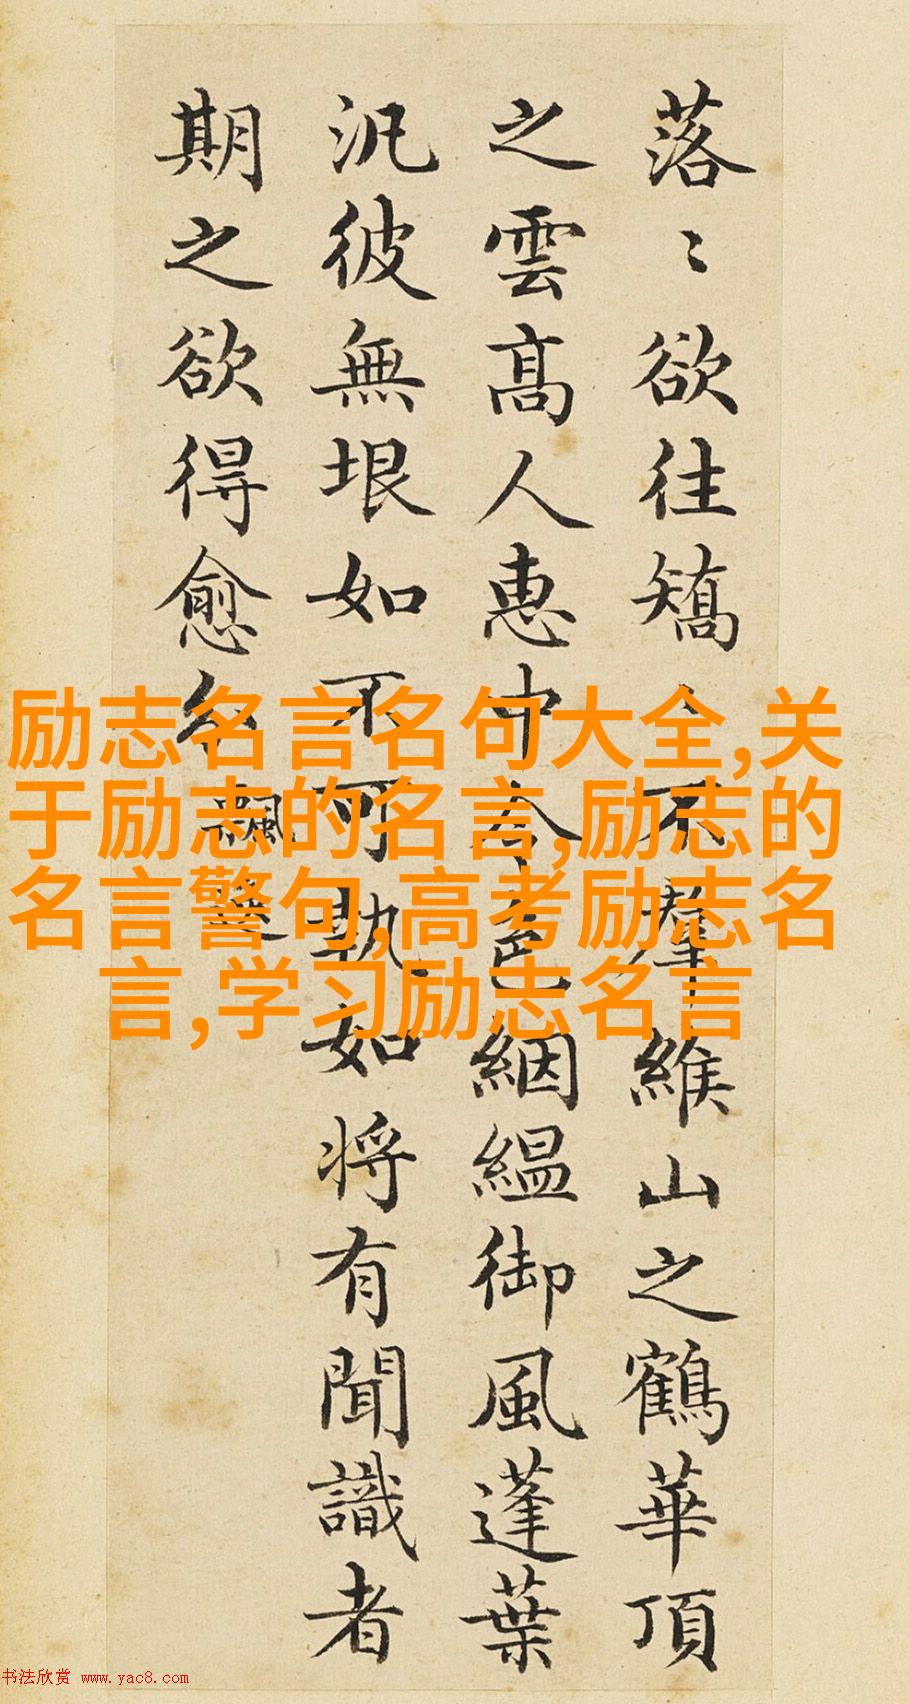 落〻欲往矯〻不羣緱山之鶴華頂
之雲高人惠中令色絪緼御風蓬葉
汎彼無垠如不可執如将有聞識者
期之欲得愈分
飄逸
励志名言名句大全,关
于励志的名言,励志的
名言警句,高考励志名
言,学习励志名言
书法欣赏 www.yac8.com